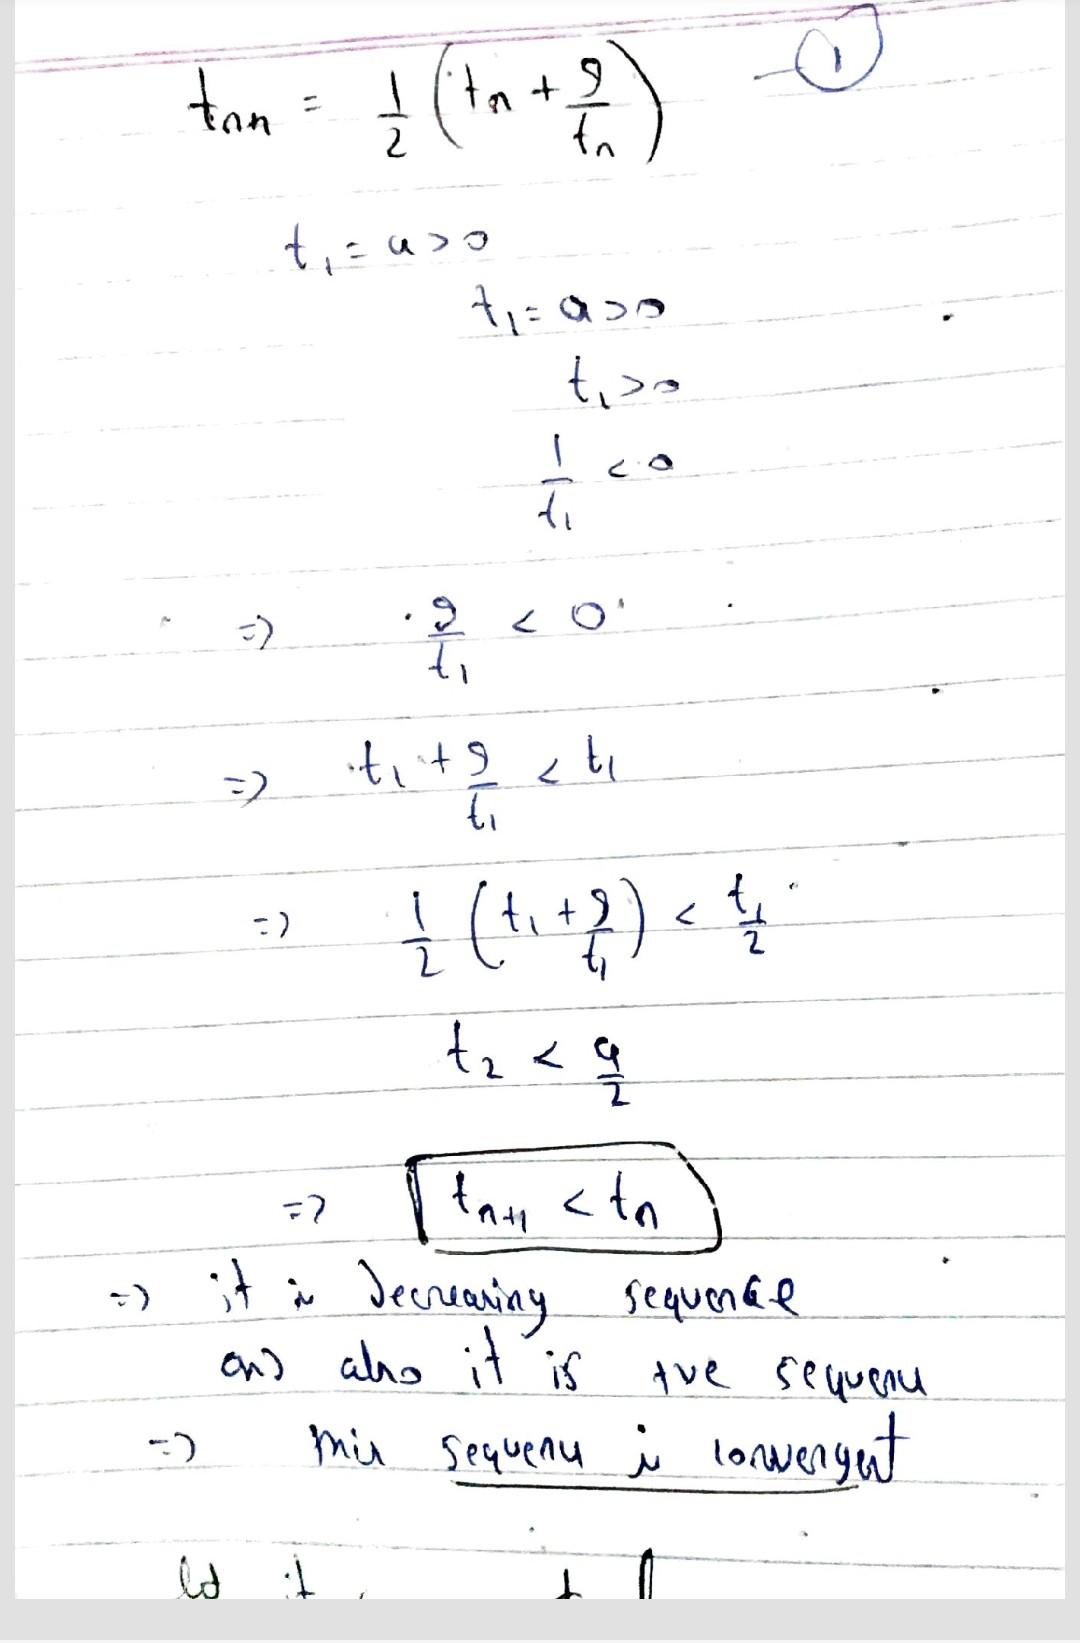 t_{n+1} = 1/2 (t_n + 9/t_n) - ①
t_1 = a > 0
t_1 = a > 0
t_1 > 0
1/t_1 < 0
=> 9/t_1 < 0
=> t_1 + 9/t_1 < t_1
=> 1/2 (t_1 + 9/t_1) < t_1/2
t_2 < a/2
=> t_{n+1} < t_n
=> it is decreasing sequence
and also it is +ve sequence
=> this sequence is convergent
let it